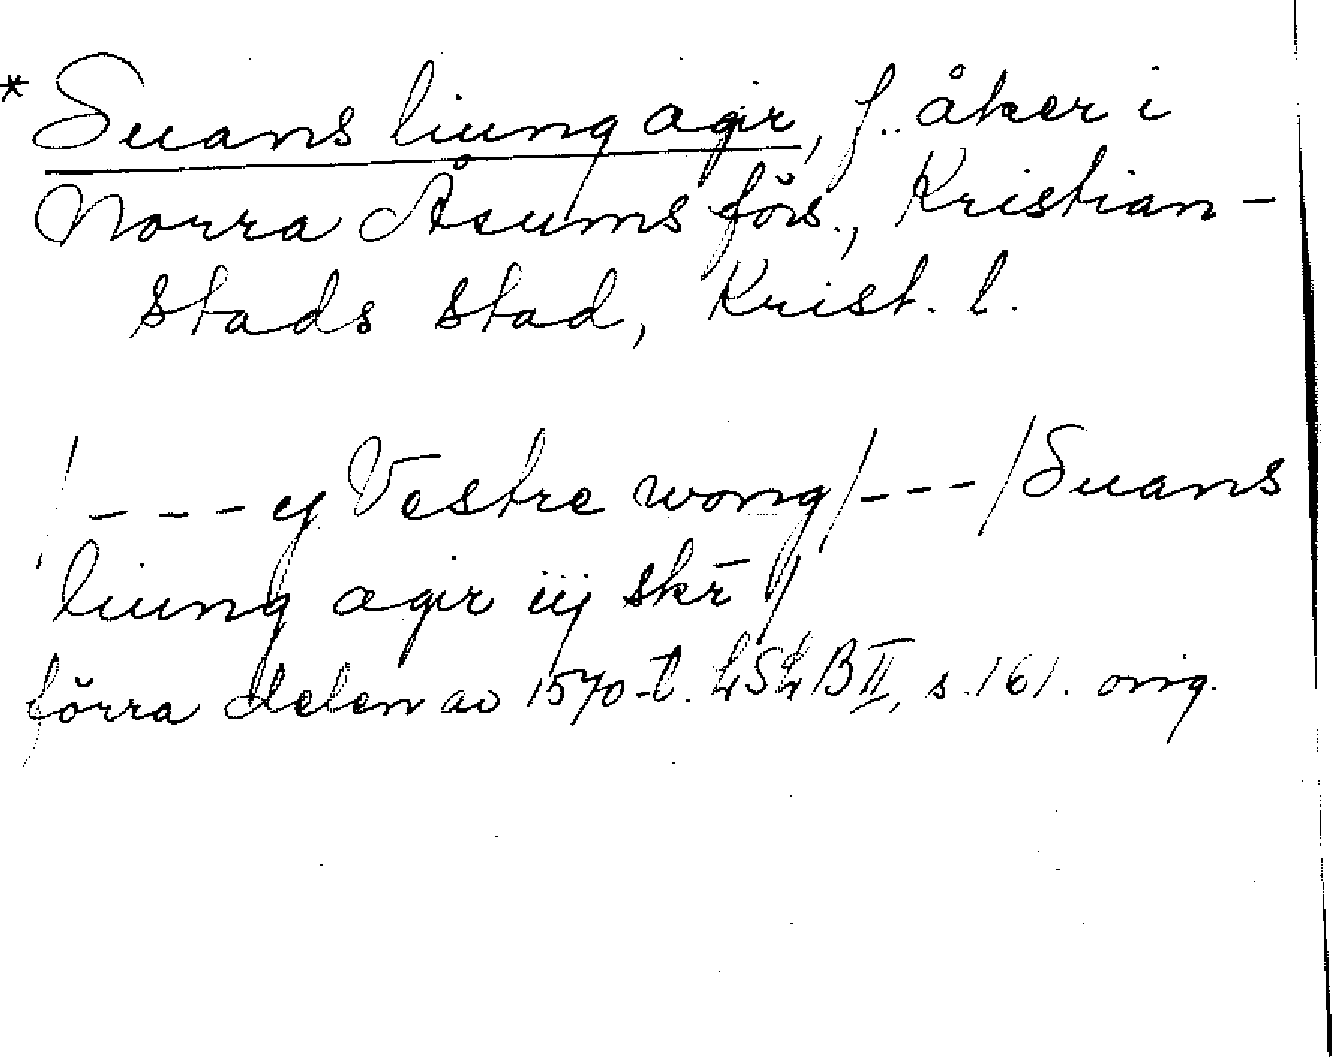 * Suans liung agir, f. åker i
Norra Åsums förs., Kristian-
stads stad, Krist. l.
/ --- ij Vestre wong / --- / Suans
liung agir iij skr̄ //
förra delen av 1570-t. LSLB II, s. 161. orig.